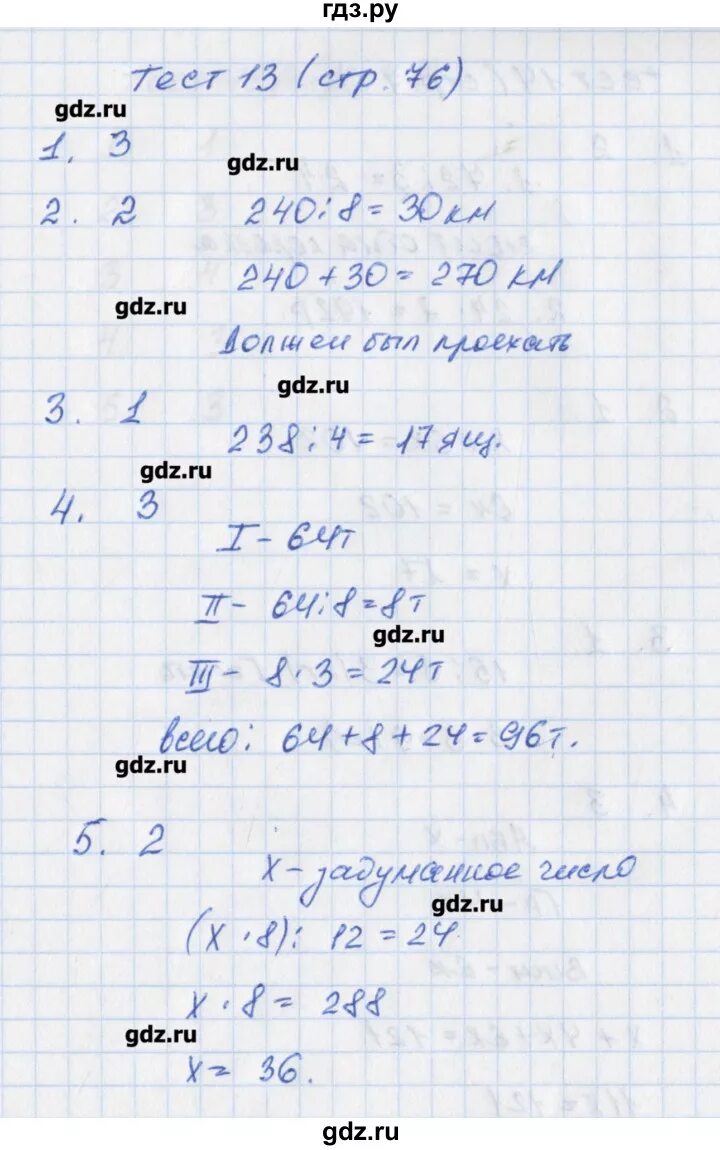 гдз.ру
Тест 13 (стр. 76)
gdz.ru
1. 3
gdz.ru
2. 2 240:8=30км
240+30=270 км
gdz.ru
Должен был проехать
gdz.ru
3. 1
238:4=17ящ.
gdz.ru
4. 3
I-64т
II-64:8=8т
gdz.ru
III-8·3=24т
всего: 64+8+24=96т.
gdz.ru
5. 2
x-задуманное число
gdz.ru
(x·8):12=24
x·8=288
gdz.ru
x=36.
gdz.ru